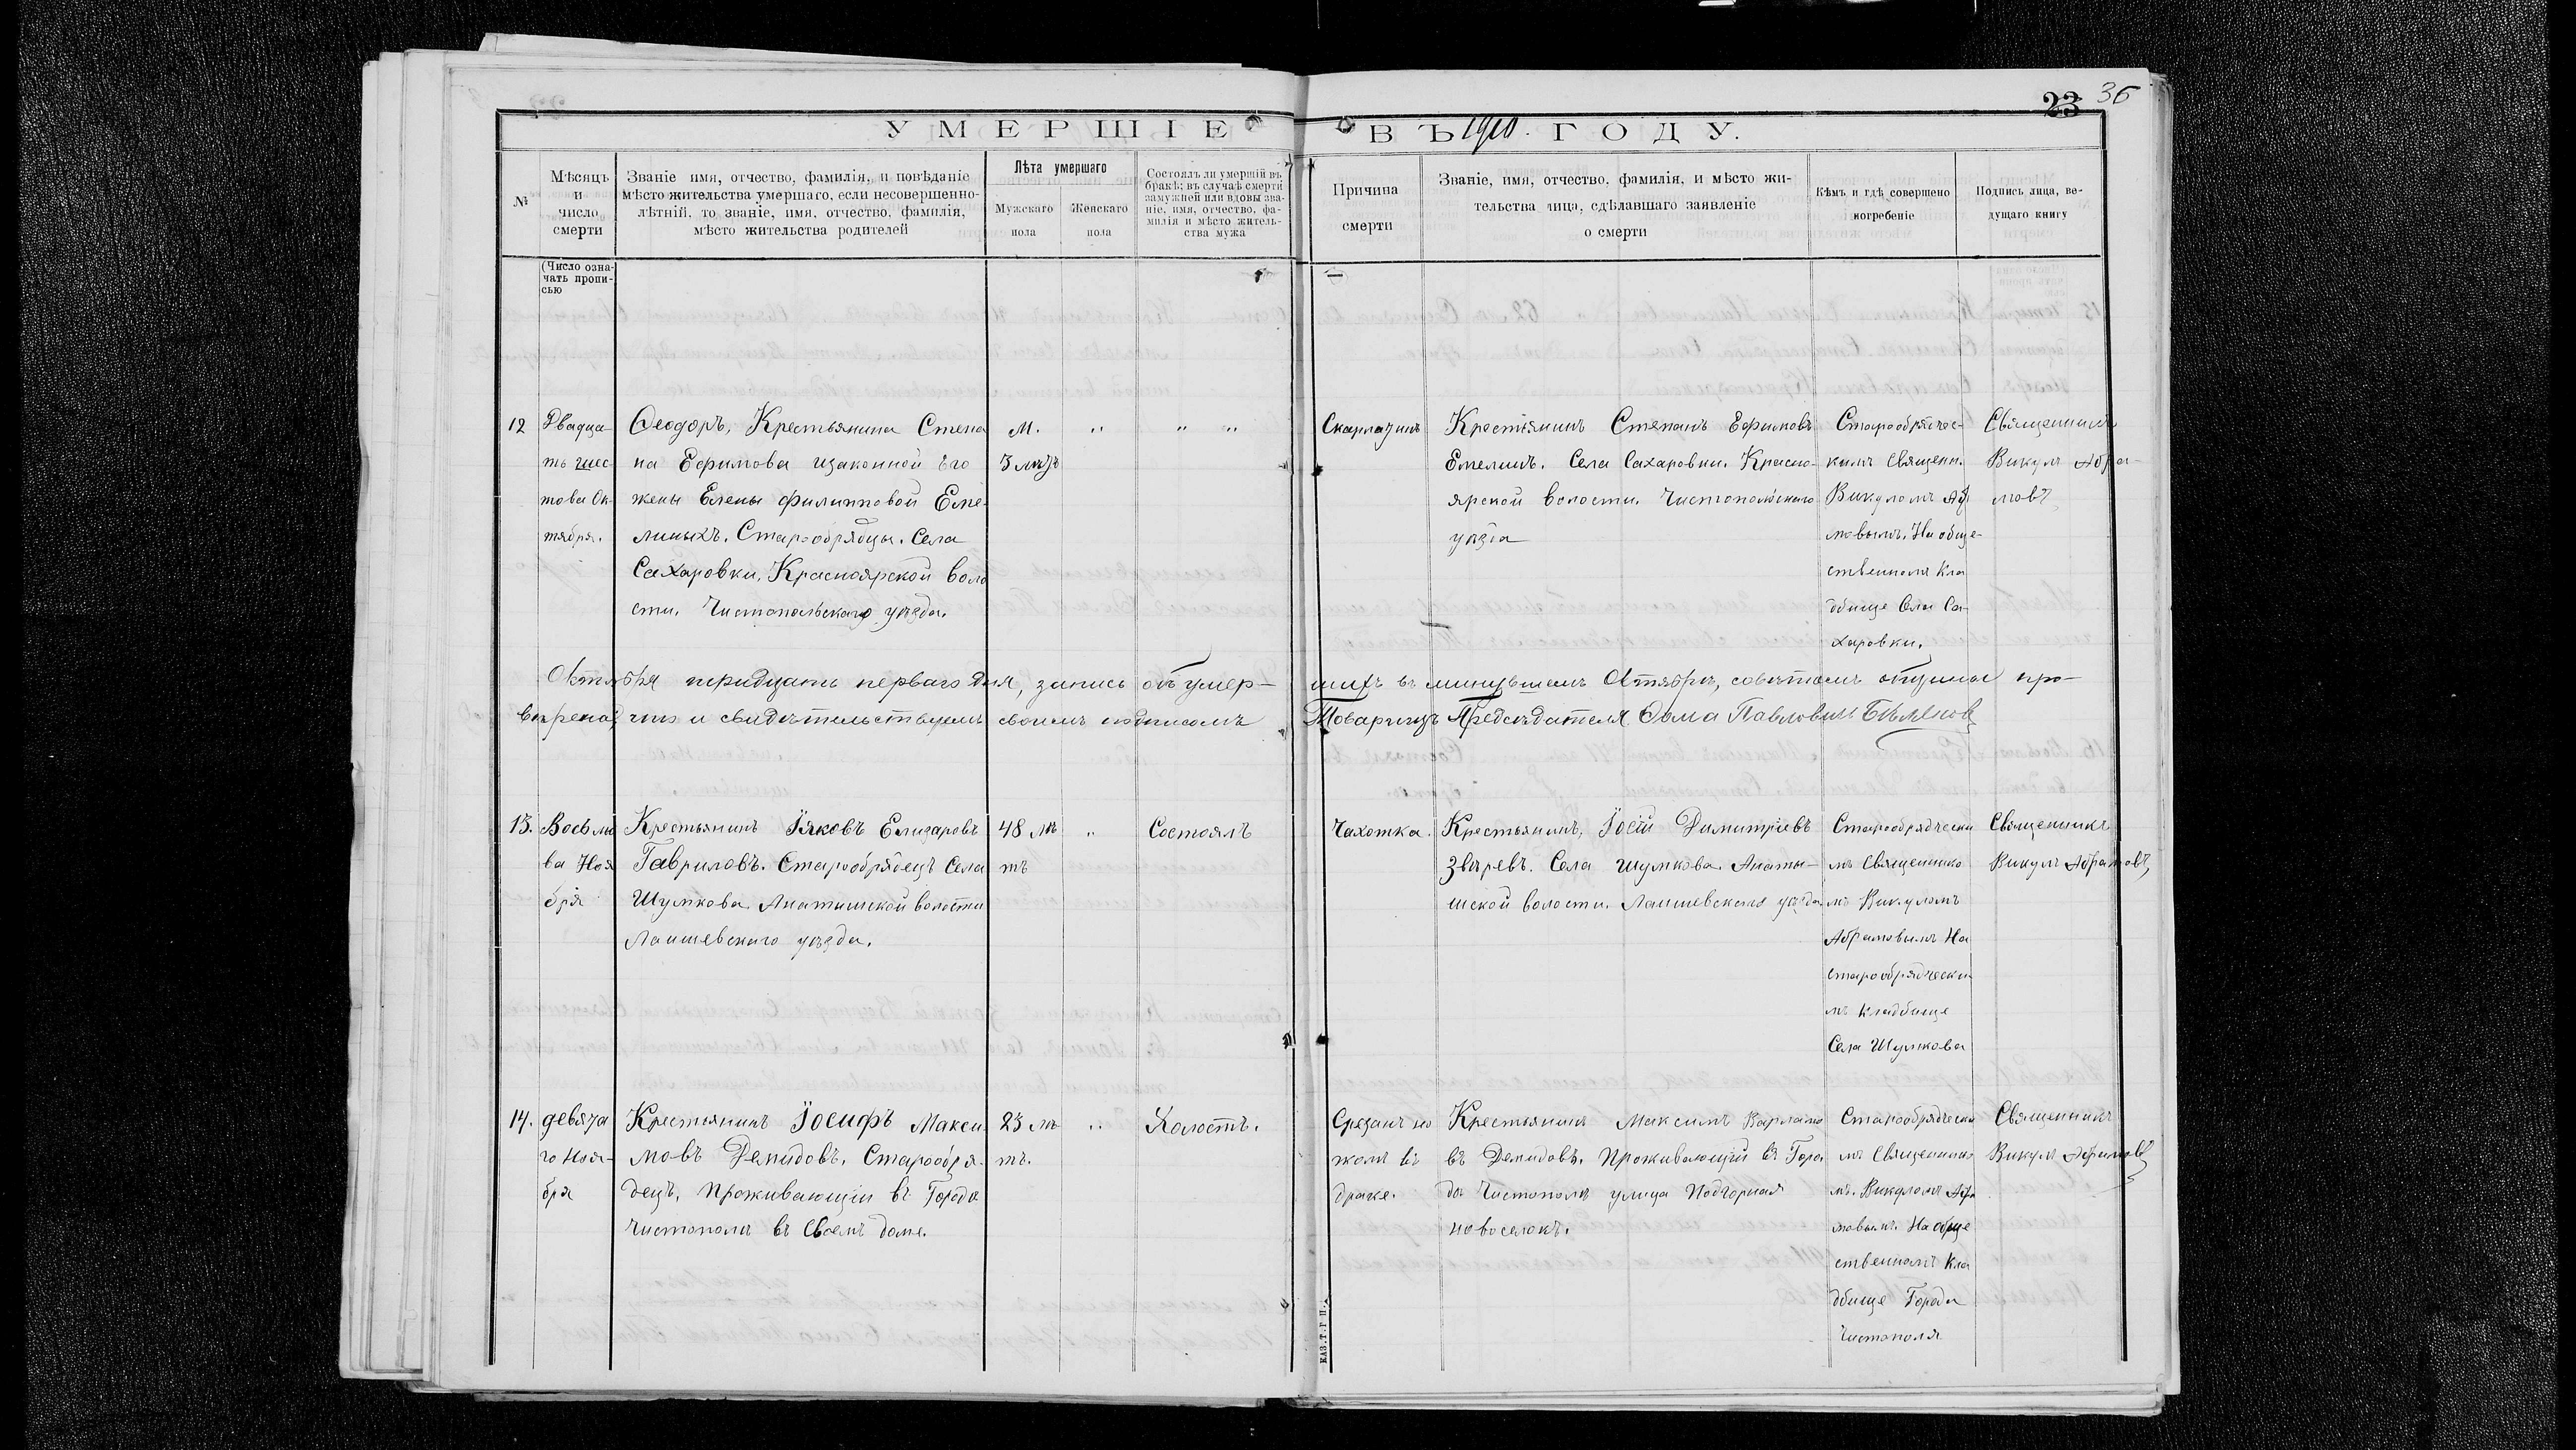 23 36
УМЕРШІЕ ВЪ 1910. ГОДУ.
№
Мѣсяцъ
и
число
смерти
Званіе имя, отчество, фамилія, и повѣданіе
мѣсто жительства умершаго, если несовершенно-
лѣтній, то званіе, имя, отчество, фамилія,
мѣсто жительства родителей
Лѣта умершаго
Мужскаго
пола
Женскаго
пола
Состоялъ ли умершій въ
бракѣ; въ случаѣ смерти
замужней или вдовы зва-
ніе, имя, отчество, фа-
милія и мѣсто житель-
ства мужа
Причина
смерти
Званіе, имя, отчество, фамилія, и мѣсто жи-
тельства лица, сдѣлавшаго заявленіе
о смерти
Кѣмъ и гдѣ совершено
погребеніе
Подпись лица, ве-
дущаго книгу
(Число озна-
чать пропи-
сью
12
Двадца-
ть шес
това Ок-
тября.
Ѳеодоръ, Крестьянина Степа
на Ефимова изаконной его
жены Елены филипповой Еме-
линыхъ. Старообрядцы. Села
Сахаровки, Красноярской воло
сти. Чистопольскаго уѣзда.
м.
3 лѣтъ
"
" "
Скарлатинъ
Крестьянинъ Степанъ Ефимовъ
Емелинъ. Села Сахаровки. Красно-
ярской волости. Чистопольскаго
уѣзда
Старообрядчес-
кимъ Священн.
Викуломъ Аб
мовымъ. На обще-
ственномъ кла
дбище Села Са-
харовки.
Священникъ
Викулъ Абра-
мовъ
Октября тридцать перваго дня, запись объ умер- шихъ въ минувшемъ Октябрѣ, совѣтомъ общины про-
вѣрена, что и свидѣтельствуемъ своимъ подписомъ Товарищъ Предсѣдателя Ѳома Павловъ
13.
Восьмо
ва Ноя
бря
Крестьянинъ Іяковъ Елизаровъ
Гавриловъ. Старообрядецъ Села
Шумкова. Анатышской волости
Лаишевскаго уѣзда.
48 лѣ
тъ
"
Состоялъ
Чахотка.
Крестьянинъ, Іосій Димитріевъ
Звѣревъ. Села Шумкова. Анаты-
шской волости. Лаишевскаго уѣзда
Старообрядчески
мъ Священнико
мъ Викуломъ
Абрамовымъ На
старообрядчески-
мъ кладбище
Села Шумкова
Священникъ
Викулъ Абрамовъ
14.
девята
го Ноя-
бря
Крестьянинъ Іосифъ Макси
мовъ Демидовъ. Старообря-
децъ. Проживающій въ Городе
Чистополи въ своемъ доме.
23 лѣ
тъ.
"
Холостъ.
Срезанъ но
жомъ въ
драке.
Крестьянинъ Максимъ Варламо
въ Демидовъ. Проживающій въ Горо
де Чистополи улица Подгорная
новоселокъ.
Старообрядчески
мъ Священнико
мъ. Викуломъ Абра
мовымъ. На обще
ственномъ кла
дбище Города
Чистополя
Священникъ
Викулъ Абрамовъ
КАЗ. Т. Г. П.